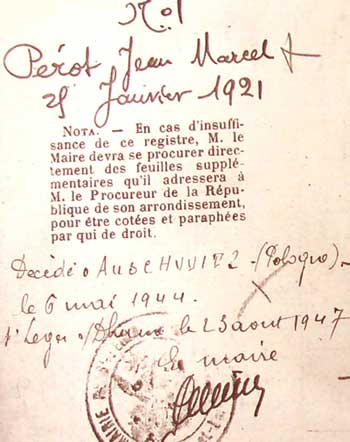 Nº1
Pérot Jean Marcel
25 Janvier 1921
NOTA. — En cas d'insuffi-
sance de ce registre, M. le
Maire devra se procurer direc-
tement des feuilles supplé-
mentaires qu'il adressera à
M. le Procureur de la Répu-
blique de son arrondissement,
pour être cotées et paraphées
par qui de droit.
Décédé à AUSCHVVITZ (Pologne).
le 6 mai 1944.
St Leger le 23 aout 1947
Le maire
MAIRIE